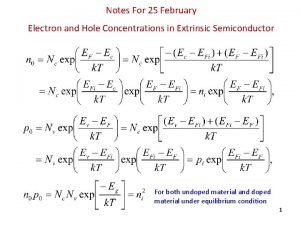 Notes For 25 February
Electron and Hole Concentrations in Extrinsic Semiconductor
n₀ = N_c exp[(E_F − E_c)/kT] = N_c exp[(−(E_c − E_Fi) + (E_F − E_Fi))/kT]
= N_c exp((E_Fi − E_c)/kT) exp((E_F − E_Fi)/kT) = n_i exp((E_F − E_Fi)/kT),
p₀ = N_v exp[(E_v − E_F)/kT] = N_c exp[((E_v − E_Fi) + (E_Fi − E_F))/kT]
= N_v exp((E_v − E_Fi)/kT) exp((E_Fi − E_F)/kT) = p_i exp((E_Fi − E_F)/kT),
n₀p₀ = N_c N_v exp[−E_g/kT] = n_i²
For both undoped material and doped
material under equilibrium condition
1